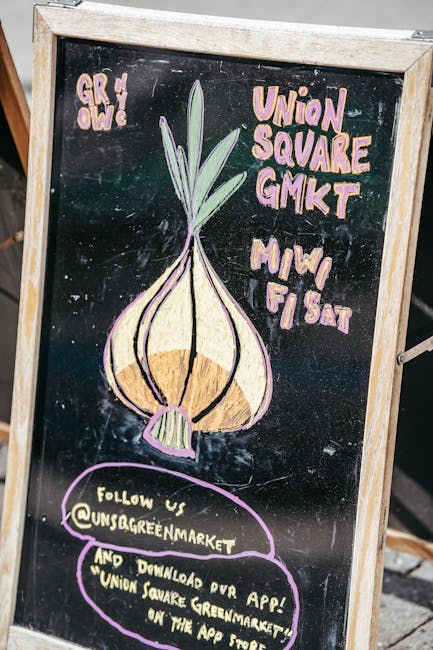 GR N
OW Y C
UNION
SQUARE
GMKT
M|W|
F|SAT
FOLLOW US
@UNSQGREENMARKET
AND DOWNLOAD OUR APP!
"UNION SQUARE GREENMARKET"
ON THE APP STORE